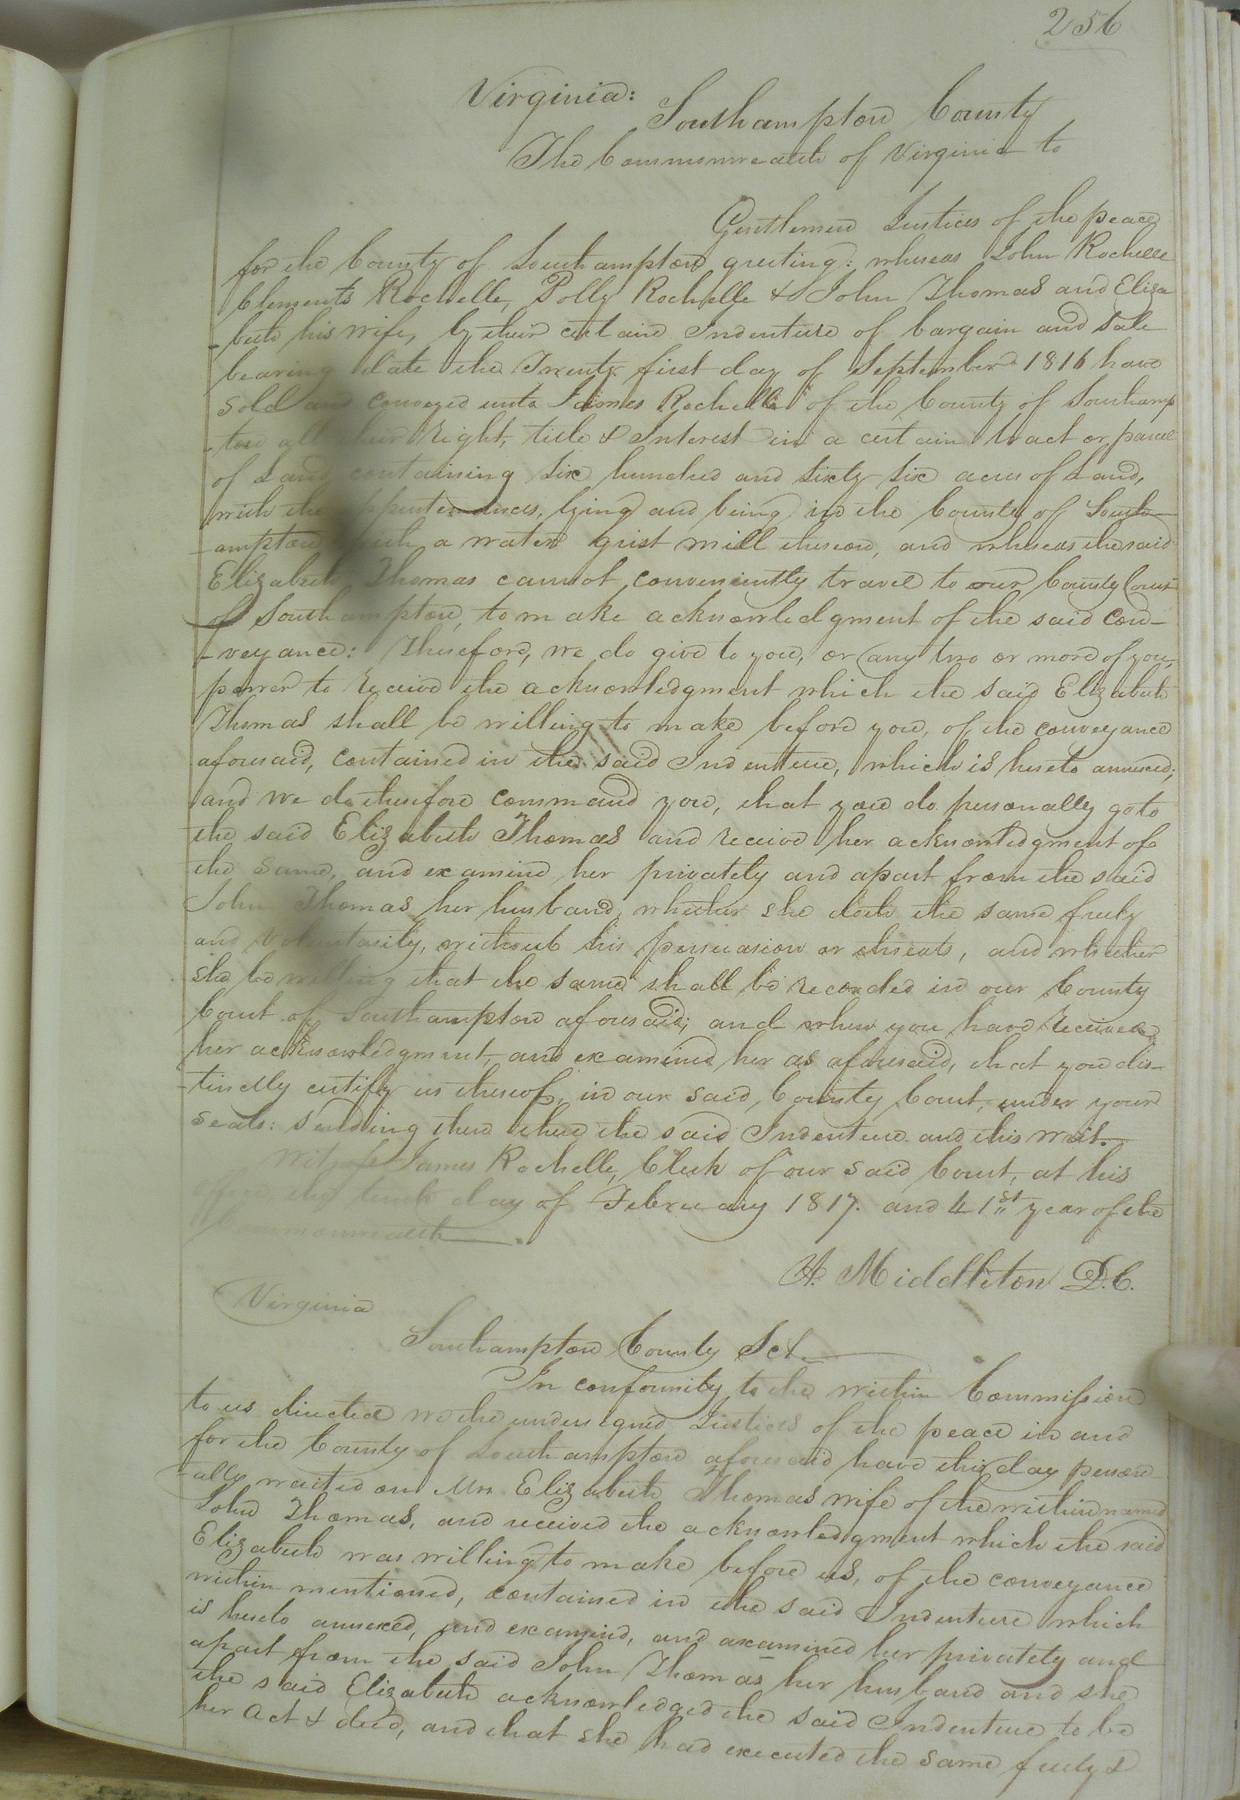 256
Virginia:
Southampton County
The Commonwealth of Virginia to
Gentlemen Justices of the peace
for the County of Southampton greeting: whereas John Rochelle
Clements Rochelle, Polly Rochelle & John Thomas and Eliza
-beth his wife, by their certain Indenture of bargain and Sale
bearing date the Twenty first day of September 1816 have
Sold and conveyed unto James Rochelle of the County of Southamp
-ton all their right, title & Interest in a certain tract or parcel
of Land containing Six hundred and Sixty Six acres of Land,
with the appurtenances, lying and being in the County of South-
-ampton with a water grist mill thereon, and whereas the said
Elizabeth Thomas cannot conveniently travel to our County Court
of Southampton, to make acknowledgment of the said con-
-veyance: Therefore, we do give to you, or any two or more of you,
power to receive the acknowledgment which the said Elizabeth
Thomas shall be willing to make before you, of the conveyance
aforesaid, contained in the said Indenture, which is hereto annexed;
and we do therefore command you, that you do personally go to
the said Elizabeth Thomas and receive her acknowledgment of
the same, and examine her privately and apart from the said
John Thomas her husband, whether she doth the same freely
and voluntarily, without his persuasion or threats, and whether
she be willing that the same shall be recorded in our County
Court of Southampton aforesaid; and when you have received
her acknowledgment, and examined her as aforesaid, that you dis-
-tinctly certify us thereof, in our said, County Court, under your
Seals: sending then there the said Indenture and this writ.
Witness James Rochelle, Clerk of our said Court, at his
office the tenth day of February 1817. and 41st year of the
Commonwealth
H. Middleton D.C.
Virginia
Southampton County Sct.
In conformity to the within Commission
to us directed we the undersigned Justices of the peace in and
for the County of Southampton aforesaid have this day person-
-ally waited on Mrs Elizabeth Thomas wife of the within named
John Thomas, and received the acknowledgment which the said
Elizabeth was willing to make before us, of the conveyance
within mentioned, contained in the said Indenture which
is hereto annexed, and examined, and axamined her privately and
apart from the said John Thomas her husband and she
the said Elizabeth acknowledged the said Indenture to be
her Act & deed, and that she had executed the same freely &